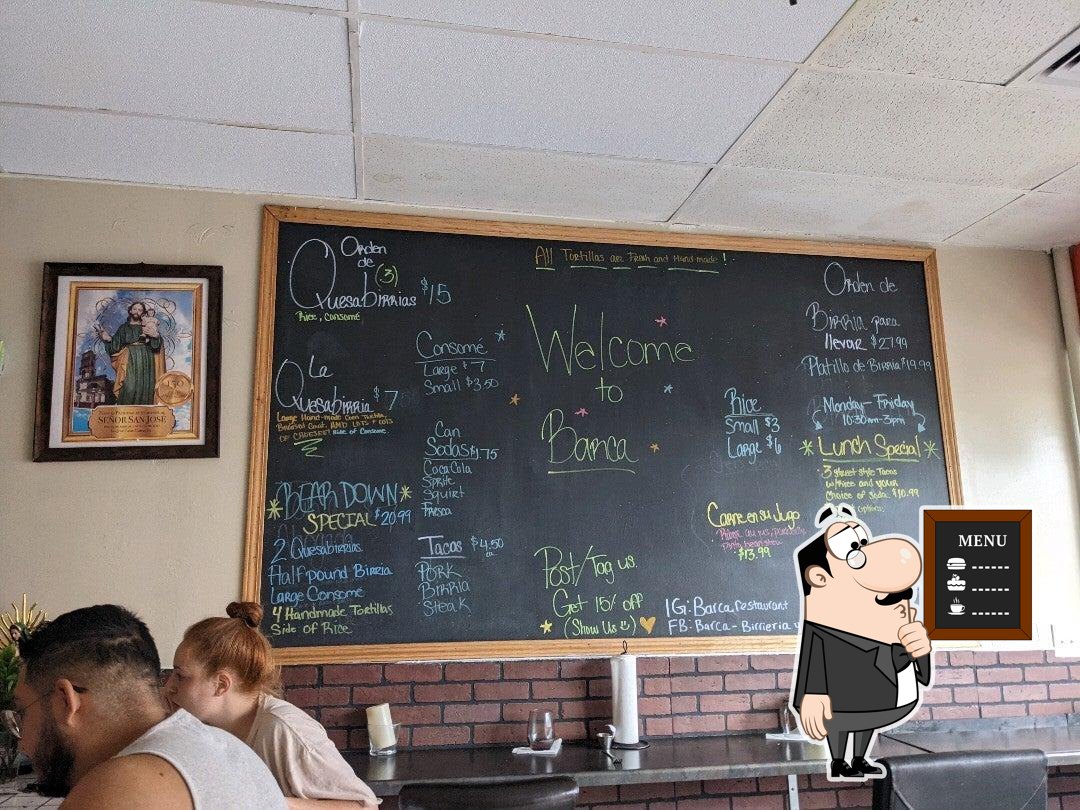 SEÑOR SAN JOSE
150
Orden
de
(3)
Quesabirrias $15
Rice, Consomé
La
Quesabirria $7
Large Hand-made Corn Tortilla,
AND LOTS + LOTS
OF CHEESE!! Side of Consome.
BEAR DOWN
SPECIAL $20.99
2 Quesabirrias
Half pound Birria
Large Consome
4 Handmade Tortillas
Side of Rice
Consomé
Large $7
Small $3.50
Can
Sodas $1.75
Coca Cola
Sprite
Squirt
Fresca
Tacos $4.50
ea
Pork
Birria
Steak
All Tortillas are Fresh and Hand-made!
Welcome
to
Barca
Post/Tag us
Get 15% off
(Show Us :))
IG: Barca.restaurant
FB: Barca-Birrieria y
Rice
Small $3
Large $6
Carne en su Jugo
$13.99
Orden de
Birria para
llevar $27.99
Platillo de Birria $19.99
Monday-Friday
10:30am-3pm
Lunch Special
3 street style Tacos
w/Rice and your
Choice of Soda. $10.99
options.
MENU